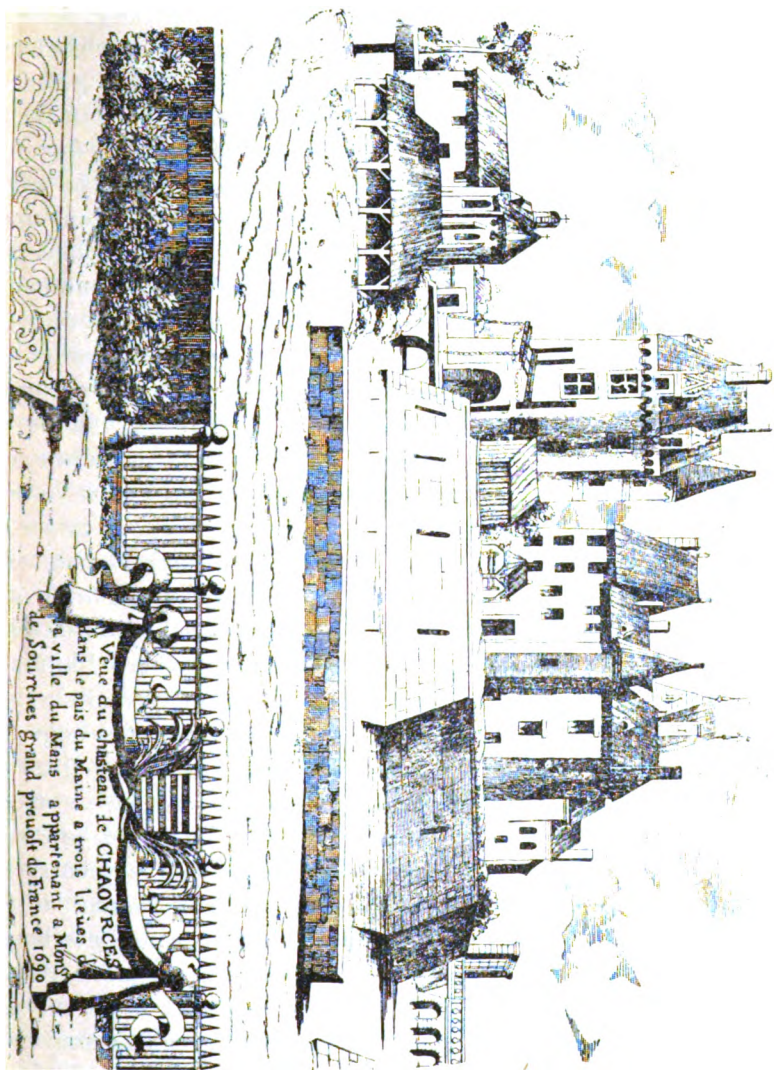 Veue du chasteau de CHAOVRCES
dans le païs du Maine a trois lieües de
la ville du Mans appartenant a Monsr
de Sourches grand preuost de France 1690